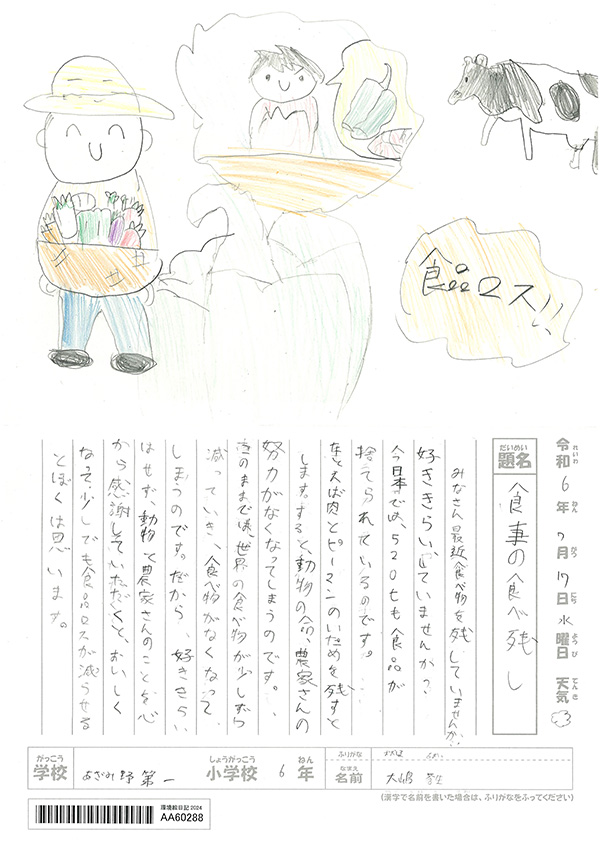 食品ロス!!
令和6年7月17日水曜日 天気
れいわ ねん がつ にち ようび てんき
題名 食事の食べ残し
だいめい
みなさん最近食べ物を残していませんか?
好ききらいしていませんか?
今日本では、520tも食品が
捨てられているのです。
たとえば肉とピーマンのいためを残すと
します。すると、動物の命、農家さんの
努力がなくなってしまうのです。
このままでは、世界の食べ物が少しずつ
減っていき、食べ物がなくなって
しまうのです。だから、好ききらい
はせず、動物と農家さんのことを心
から感謝していただくと、おいしく
なって少しでも食品ロスが減らせる
とぼくは思います。
がっこう しょうがっこう ねん ふりがな
学校 あざみ野第一 小学校 6年
なまえ
名前
(漢字で名前を書いた場合は、ふりがなをふってください)
環境絵日記2024
AA60288